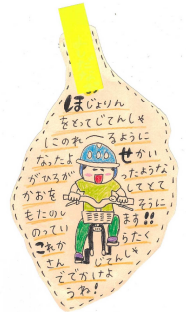 ほじょりん
をとってじてんしゃ
にのれるように
なったよ せかい
がひろがったような
かおをしてとて
もたのしそうに
のっています!!
これからたく
さんじてんしゃ
ででかけよ
うね!